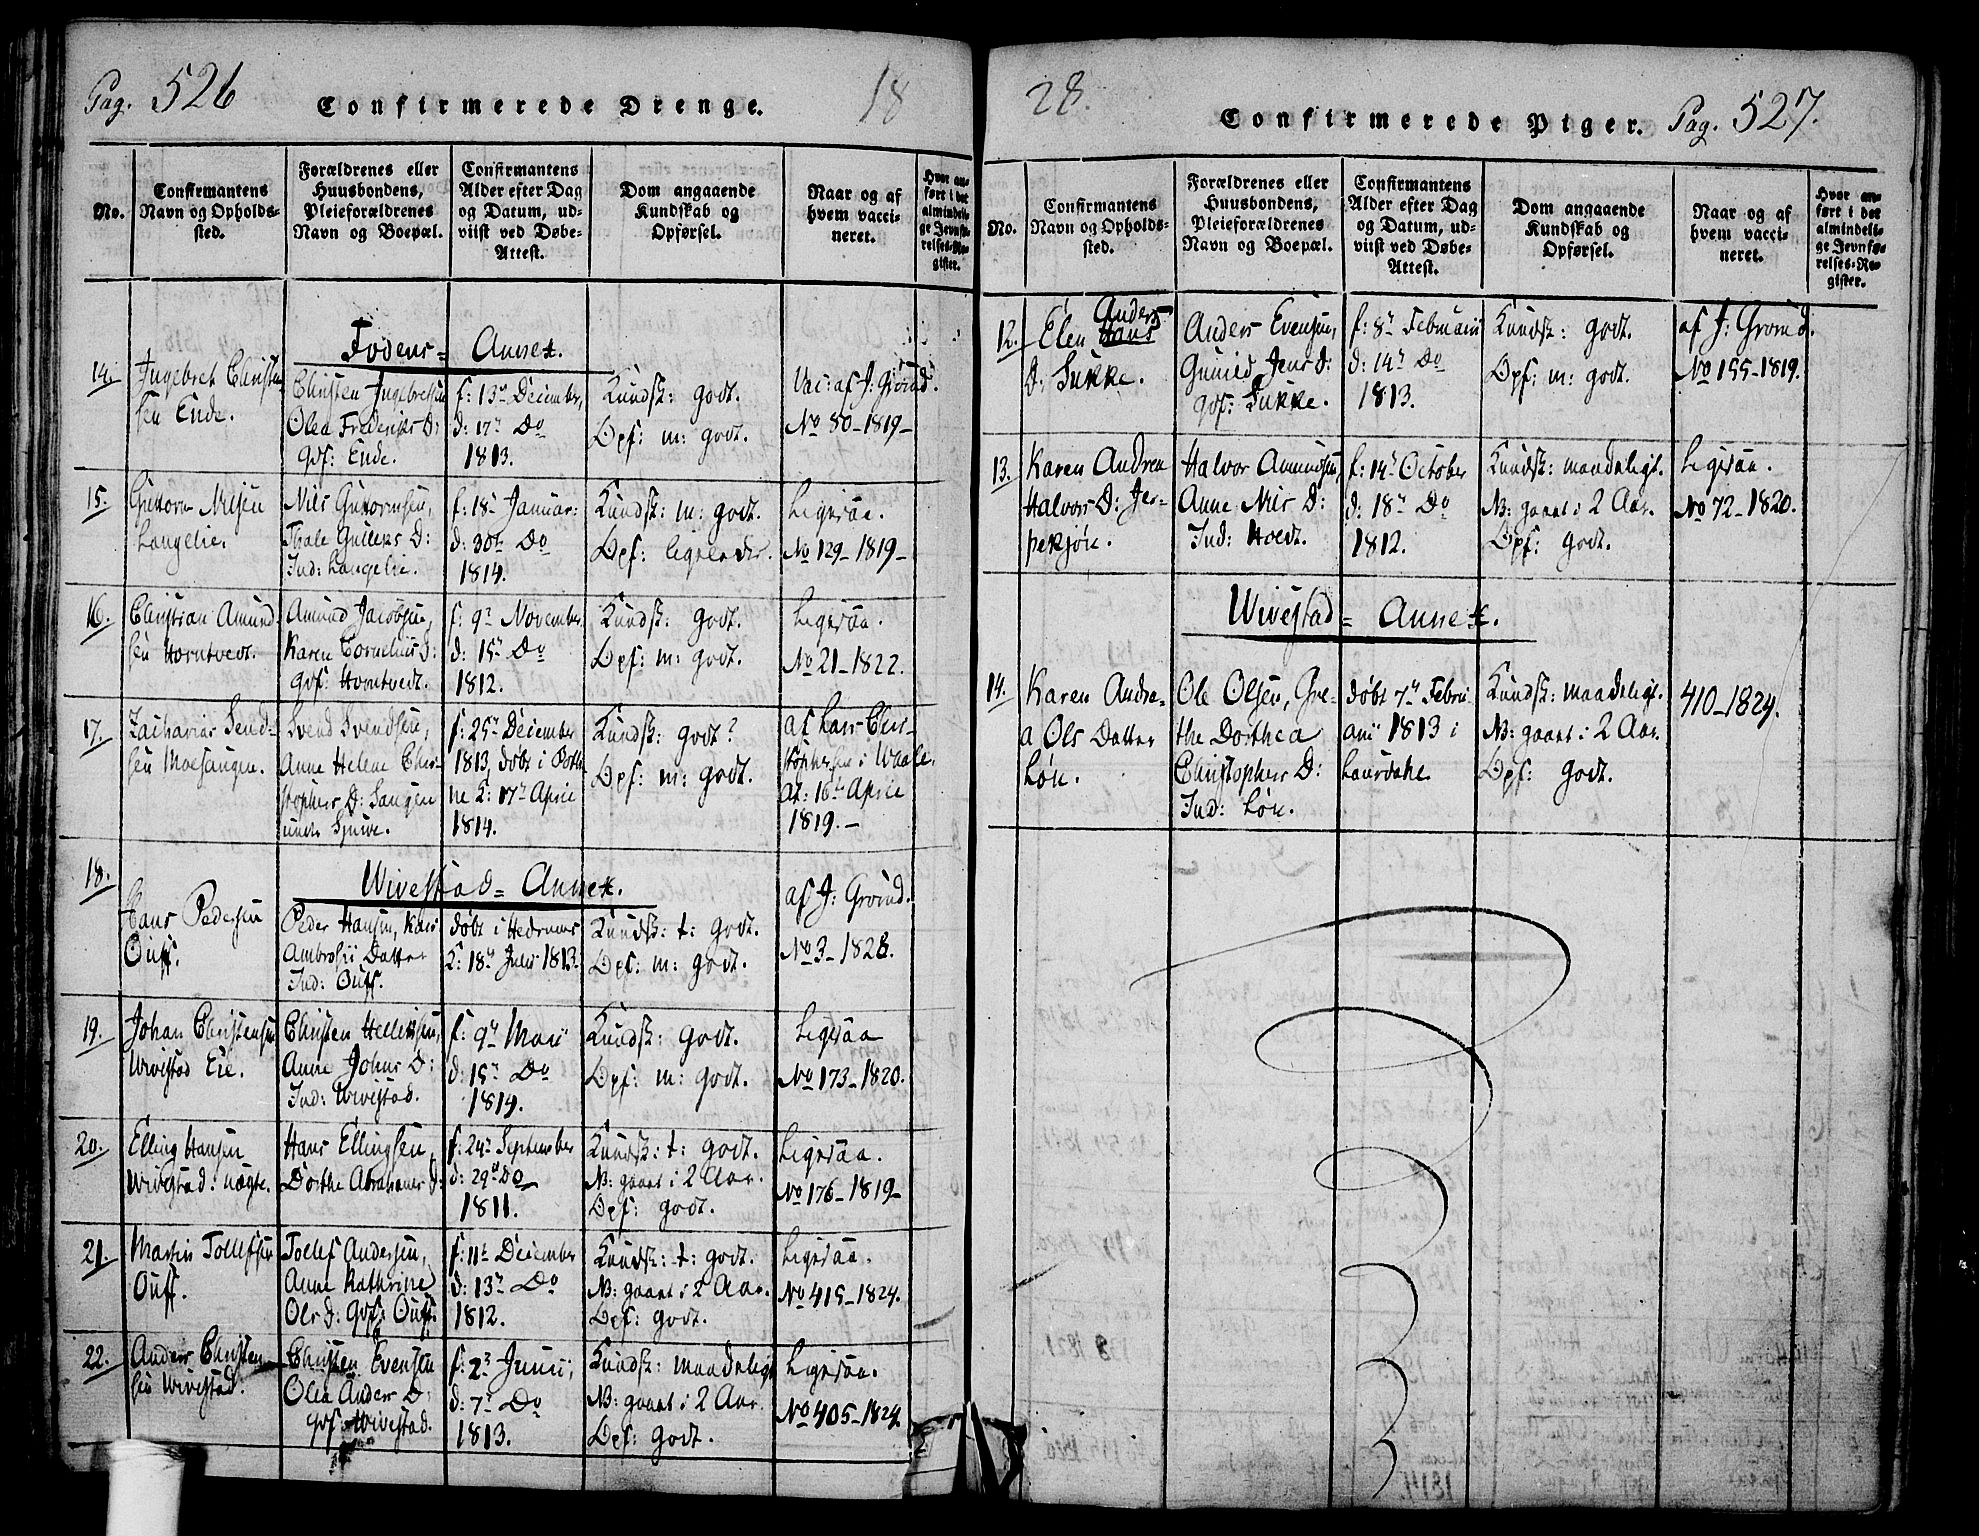 Pag. 526
Confirmerede Drenge.
18
No.
Confirmantens
Navn og Opholds-
sted.
Forældrenes eller
Huusbondens,
Pleieforældrenes
Navn og Boepæl.
Confirmantens
Alder efter Dag
og Datum, ud-
viist ved Døbe-
Attest.
Dom angaaende
Kundskab og
Opførsel.
Naar og af
hvem vacci-
neret.
Hvor an-
ført i det
almindeli-
ge Jevnfø-
relses-Re-
gister.
Fodens- Annex.
14.
Ingebret Christen
sen Ende.
Christen Ingebretsen
Olea Frederiks D:
gdf: Ende.
f: 13de December,
d: 17de Do
1813.
Kundsk: godt.
Opf: m: godt.
Vac: af J: Grønd.
No 80-1819-
15.
Guttorm Nilsen
Langelie.
Nils Guttormsen,
Thale Gulleks D:
Ind: Langelie.
f: 18de Januar:
d: 30te Do
1814.
Kundsk: m: godt.
Opf: ligeledes.
Ligesaa.
No 129-1819-
16.
Christian Amund
sen Horntvedt.
Amund Jacobsen,
Karen Cornelius D:
gdf: Horntvedt.
f: 9de November
d: 15de Do
1812.
Kundsk: godt.
Opf: m: godt.
Ligesaa.
No 21-1822.
17.
Zacharias Send-
sen Moesangen.
Svend Svendsen,
Anne Helene Chri-
stophers D: Sangen
f: 25de December
1813, døbt i Bott
ne K: 17de April
1814.
Kundsk: godt?
Opf: m: godt.
af Lars Chri-
stophersen i Waale,
at: 16de April
1819.-
18.
Wivestad- Annex.
Hans Pedersen
Ouff.
Peder Hansen, Kari
Ambrosii Datter
Ind: Ouff.
døbt i Hedrums
K: 18de Julii 1813.
Kundsk: t: godt.
Opf: m: godt.
af J: Grønd.
No 3-1828.
19.
Johan Christensen
Wivestad Eie.
Christen Hellikssen,
Anne Johns D:
Ind: Wivestad.
f: 9de Maii
d: 15de Do
1814.
Kundsk: godt.
Opf: m: godt.
Ligesaa
No 173-1820.
20.
Elling Hansen
Wivestad: nægte.
Hans Ellingsen,
Dorthe Abrahams D:
f: 24de September
d: 29d Do
1811.
Kundsk: t: godt.
NB: gaaet i 2 Aar.
Opf: godt.
Ligesaa.
No 176-1819-
21.
Martin Tollefsen
Ouff.
Tollef Andersen,
Anne Kathrine
Ols D: gdf: Ouff.
f: 11te December
d: 13de Do
1812.
Kundsk: t: godt.
NB: gaaet i 2 Aar.
Opf: godt.
Ligesaa.
No 415-1824.
22.
Anders Christen
sen Wivestad.
Christen Evensen
Olea Anders D:
gdf: Wivestad.
f: 2d Junii;
d: 7de Do
1813.
Kundsk: maadeligt
NB: gaaet i 2 Aar.
Opf: godt.
Ligesaa.
No 405-1824
28.
Confirmerede Piger.
Pag. 527.
No.
Confirmantens
Navn og Opholds-
sted.
Forældrenes eller
Huusbondens,
Pleieforældrenes
Navn og Boepæl.
Confirmantens
Alder efter Dag
og Datum, ud-
viist ved Døbe-
Attest.
Dom angaaende
Kundskab og
Opførsel.
Naar og af
hvem vacci-
neret.
Hvor an-
ført i det
almindeli-
ge Jevnfø-
relses-Re-
gister.
12.
Anders
Elen Hans
D: Sukke.
Anders Evensen,
Gunild Jens D:
gdf: Sukke.
f: 8de Februarii
d: 14de Do
1813.
Kundsk: godt.
Opf: m: godt.
af J: Grønd.
No 155-1819.
13.
Karen Andrea
Halvors D: Jer-
pekjøn.
Halvor Amundsen,
Anne Nils D:
Ind: Hoedt.
f: 14de October
d: 18de Do
1812.
Kundsk: maadeligt.
NB: gaaet i 2 Aar.
Opf: godt.
Ligesaa.
No 72-1820.
Wivestad- Annex.
14.
Karen Andre-
a Ols Datter
Løn.
Ole Olsen, Gre-
the Dorthea
Christophers D:
Ind: Løn.
døbt 7de Febru
arii 1813 i
Laurdahl
Kundsk: maadeligt.
NB: gaaet i 2 Aar.
Opf: godt.
410-1824.